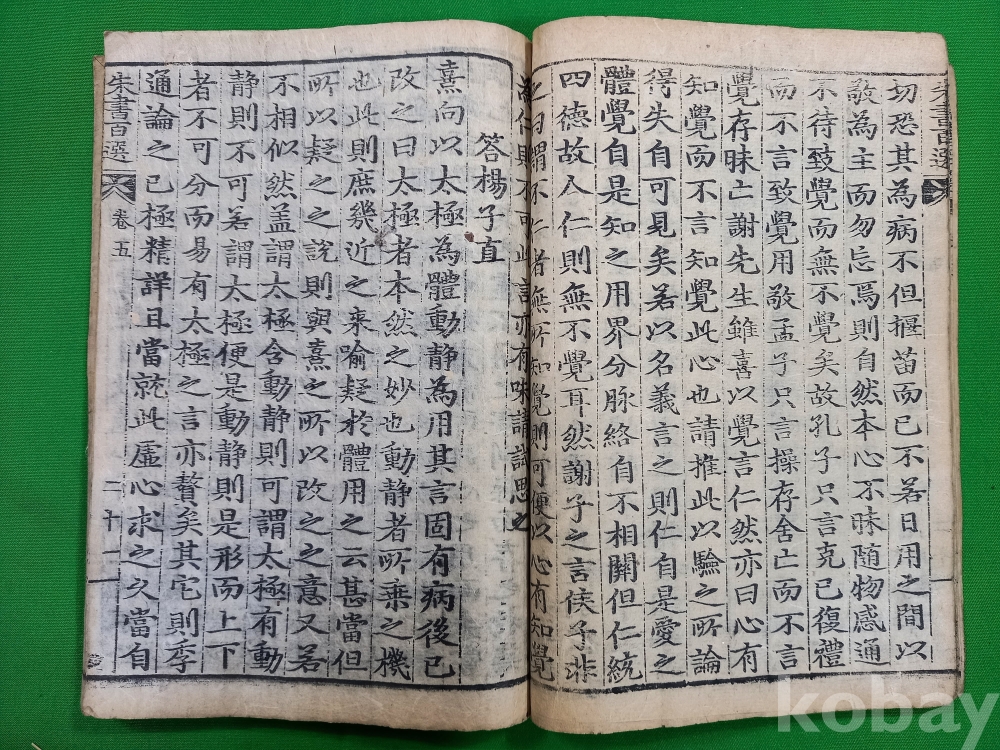 朱書百選
切恐其為病不但揠苗而已不若日用之間以
敬為主而勿忘焉則自然本心不昧随物感通
不待致覺而無不覺矣故孔子只言克己復禮
而不言致覺用敬孟子只言操存舍亡而不言
覺存昧亡謝先生雖喜以覺言仁然亦曰心有
知覺而不言知覺此心也請推此以驗之所論
得失自可見矣若以名義言之則仁自是愛之
體覺自是知之用界分脉絡自不相關但仁統
四德故人仁則無不覺耳然謝子之言侯子非
之曰謂不仁者無所知覺則可便以心有知覺
為仁則不可此言亦有味請試思之
答楊子直
熹向以太極為體動静為用其言固有病後已
改之曰太極者本然之妙也動静者所乗之機
也此則庶幾近之来喻疑於體用之云甚當但
所以疑之之說則與熹之所以改之之意又若
不相似然盖謂太極含動静則可謂太極有動
静則可若謂太極便是動静則是形而上下
者不可分而易有太極之言亦贅矣其它則季
通論之已極精詳且當就此虛心求之久當自
朱書百選
卷五
二十一
kobay